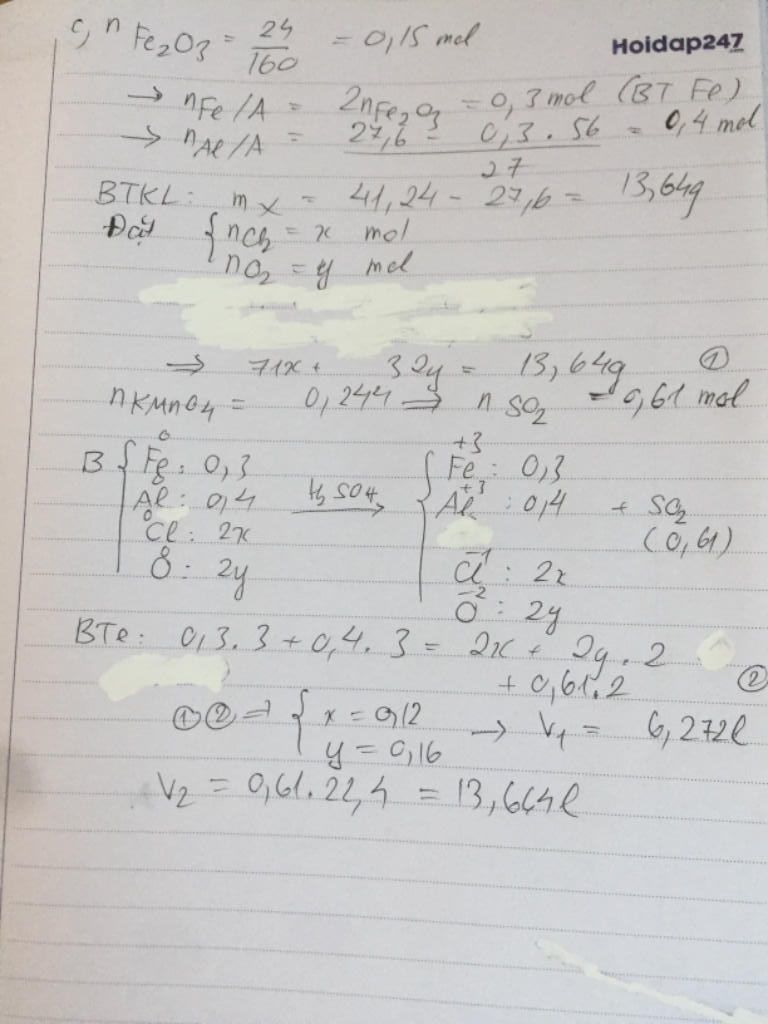 c, n Fe2O3 = 24/160 = 0,15 mol
Hoidap247
→ nFe/A = 2nFe2O3 = 0,3 mol (BT Fe)
→ nAl/A = (27,6 - 0,3.56)/27 = 0,4 mol
BTKL: mX = 41,24 - 27,6 = 13,64g
Đặt { nCl2 = x mol
nO2 = y mol
⇒ 71x + 32y = 13,64g ①
nKMnO4 = 0,244 ⇒ nSO2 = 0,61 mol
B { Fe⁰: 0,3 H2SO4→ { Fe⁺³: 0,3
Al⁰: 0,4 Al⁺³: 0,4 + SO2
Cl⁰: 2x (0,61)
O⁰: 2y Cl⁻¹: 2x
O⁻²: 2y
BTe: 0,3.3 + 0,4.3 = 2x + 2y.2
+ 0,61.2 ②
①② ⇒ { x = 0,12 → V1 = 6,272l
y = 0,16
V2 = 0,61.22,4 = 13,664l